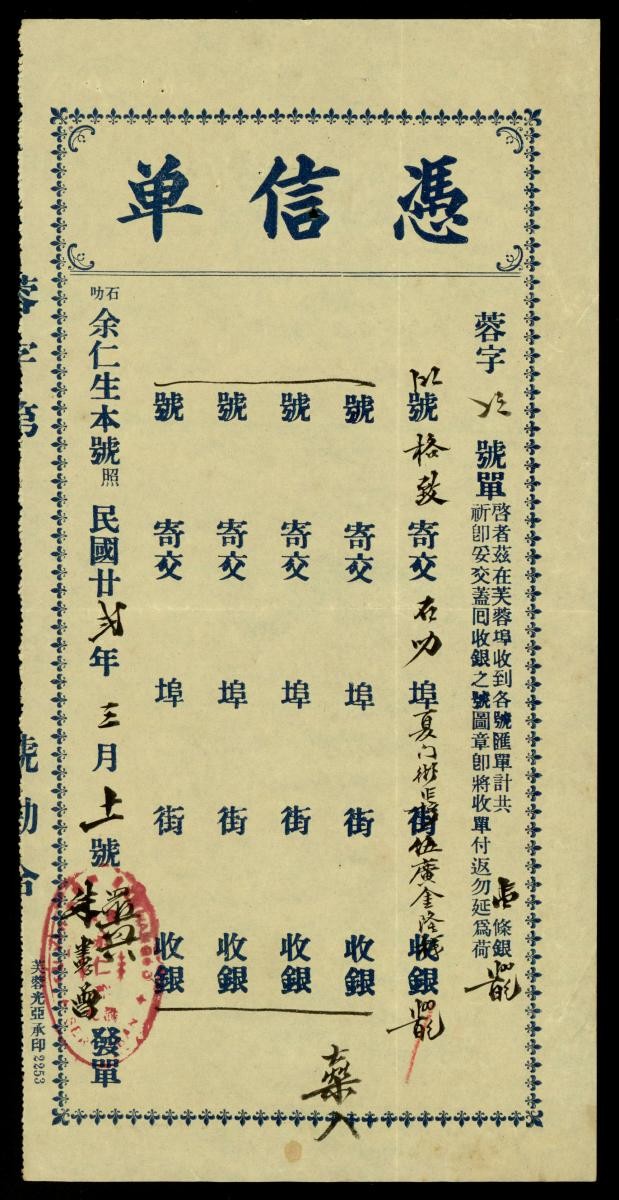 憑信单
蓉字 號單
啓者茲在芙蓉埠收到各號匯單計共 條銀
祈卽妥交蓋囘收銀之號圖章卽將收單付返勿延爲荷
號 格致 寄交 石叻 埠 厦门 街 金隆 收銀
號 寄交 埠 街 收銀
號 寄交 埠 街 收銀
號 寄交 埠 街 收銀
號 寄交 埠 街 收銀
石叻 余仁生本號照 民國廿弍年 三月 十一號 發單
蓉字第 號勘合
芙蓉光亞承印 2253